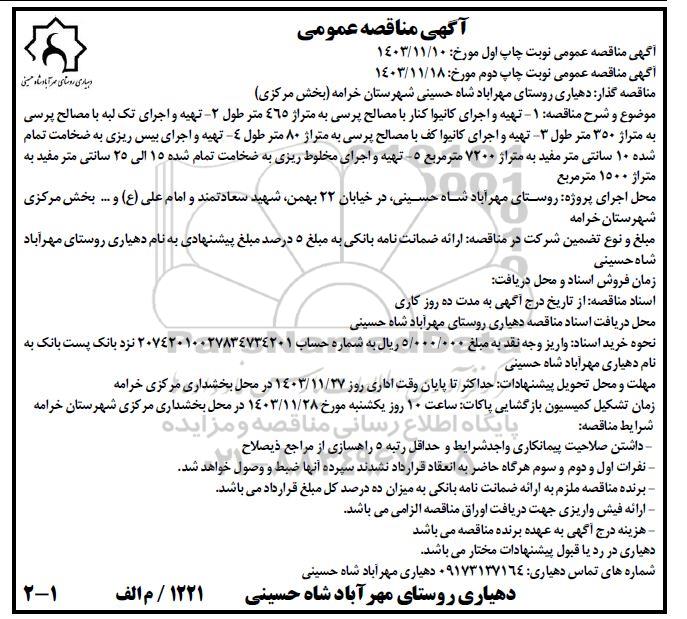 آگهی مناقصه عمومی
دهیاری روستای مهرآباد شاه حسینی
آگهی مناقصه عمومی نوبت چاپ اول مورخ: ۱۴۰۳/۱۱/۱۰
آگهی مناقصه عمومی نوبت چاپ دوم مورخ: ۱۴۰۳/۱۱/۱۸
مناقصه گذار: دهیاری روستای مهراباد شاه حسینی شهرستان خرامه (بخش مرکزی)
موضوع و شرح مناقصه: ۱- تهیه و اجرای کانیوا کنار با مصالح پرسی به متراژ ۴۶۵ متر طول ۲- تهیه و اجرای تک لبه با مصالح پرسی
به متراژ ۳۵۰ متر طول ۳- تهیه و اجرای کانیوا کف با مصالح پرسی به متراژ ۸۰ متر طول ۴- تهیه و اجرای بیس ریزی به ضخامت تمام
شده ۱۰ سانتی متر مفید به متراژ ۷۲۰۰ مترمربع ۵- تهیه و اجرای مخلوط ریزی به ضخامت تمام شده ۱۵ الی ۲۵ سانتی متر مفید به
متراژ ۱۵۰۰ مترمربع
محل اجرای پروژه: روستای مهرآباد شاه حسینی، در خیابان ۲۲ بهمن، شهید سعادتمند و امام علی (ع) و ... بخش مرکزی
شهرستان خرامه
مبلغ و نوع تضمین شرکت در مناقصه: ارائه ضمانت نامه بانکی به مبلغ ۵ درصد مبلغ پیشنهادی به نام دهیاری روستای مهرآباد
شاه حسینی
زمان فروش اسناد و محل دریافت:
اسناد مناقصه: از تاریخ درج آگهی به مدت ده روز کاری
محل دریافت اسناد مناقصه دهیاری روستای مهرآباد شاه حسینی
نحوه خرید اسناد: واریز وجه نقد به مبلغ ۵/۰۰۰/۰۰۰ ریال به شماره حساب ۲۰۷۴۲۰۱۰۰۲۷۸۳۴۷۳۴۲۰۱ نزد بانک پست بانک به
نام دهیاری مهرآباد شاه حسینی
مهلت و محل تحویل پیشنهادات: حداکثر تا پایان وقت اداری روز ۱۴۰۳/۱۱/۲۷ در محل بخشداری مرکزی خرامه
زمان تشکیل کمیسیون بازگشایی پاکات: ساعت ۱۰ روز یکشنبه مورخ ۱۴۰۳/۱۱/۲۸ در محل بخشداری مرکزی شهرستان خرامه
شرایط مناقصه:
- داشتن صلاحیت پیمانکاری واجدشرایط و حداقل رتبه ۵ راهسازی از مراجع ذیصلاح
- نفرات اول و دوم و سوم هرگاه حاضر به انعقاد قرارداد نشدند سپرده آنها ضبط و وصول خواهد شد.
- برنده مناقصه ملزم به ارائه ضمانت نامه بانکی به میزان ده درصد کل مبلغ قرارداد می باشد.
- ارائه فیش واریزی جهت دریافت اوراق مناقصه الزامی می باشد.
- هزینه درج آگهی به عهده برنده مناقصه می باشد
دهیاری در رد یا قبول پیشنهادات مختار می باشد.
شماره های تماس دهیاری: ۰۹۱۷۳۱۳۷۱۶۴ دهیاری مهرآباد شاه حسینی
دهیاری روستای مهرآباد شاه حسینی ۱۲۲۱ / م الف ۱-۲
ParsNamadData
پایگاه اطلاع رسانی مناقصه و مزایده